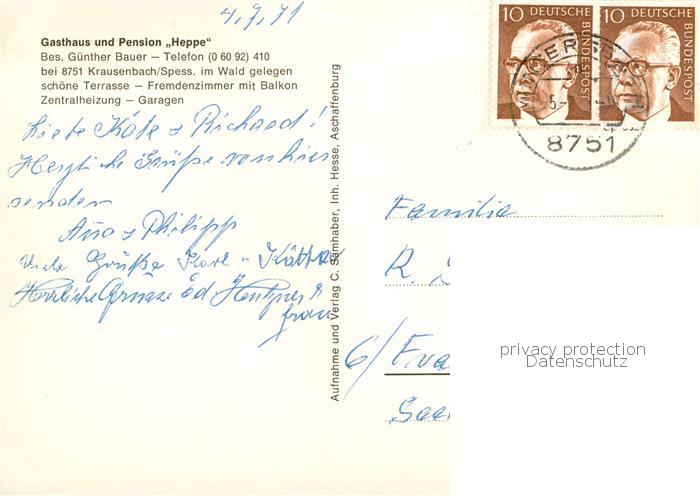 4.7.71
Gasthaus und Pension „Heppe"
Bes. Günther Bauer — Telefon (0 60 92) 410
bei 8751 Krausenbach/Spess. im Wald gelegen
schöne Terrasse — Fremdenzimmer mit Balkon
Zentralheizung — Garagen
Liebe Käte & Richard!
Herzliche Grüße von hier
senden
& Philipp
Viele Grüße Karl u. Käthe
Herzliche Grüsse
Frau
Aufnahme und Verlag C. Samhaber, Inh. Hesse, Aschaffenburg
10 DEUTSCHE BUNDESPOST
10 DEUTSCHE BUNDESPOST
8751
Familie
R.
6/
Saa
privacy protection
Datenschutz